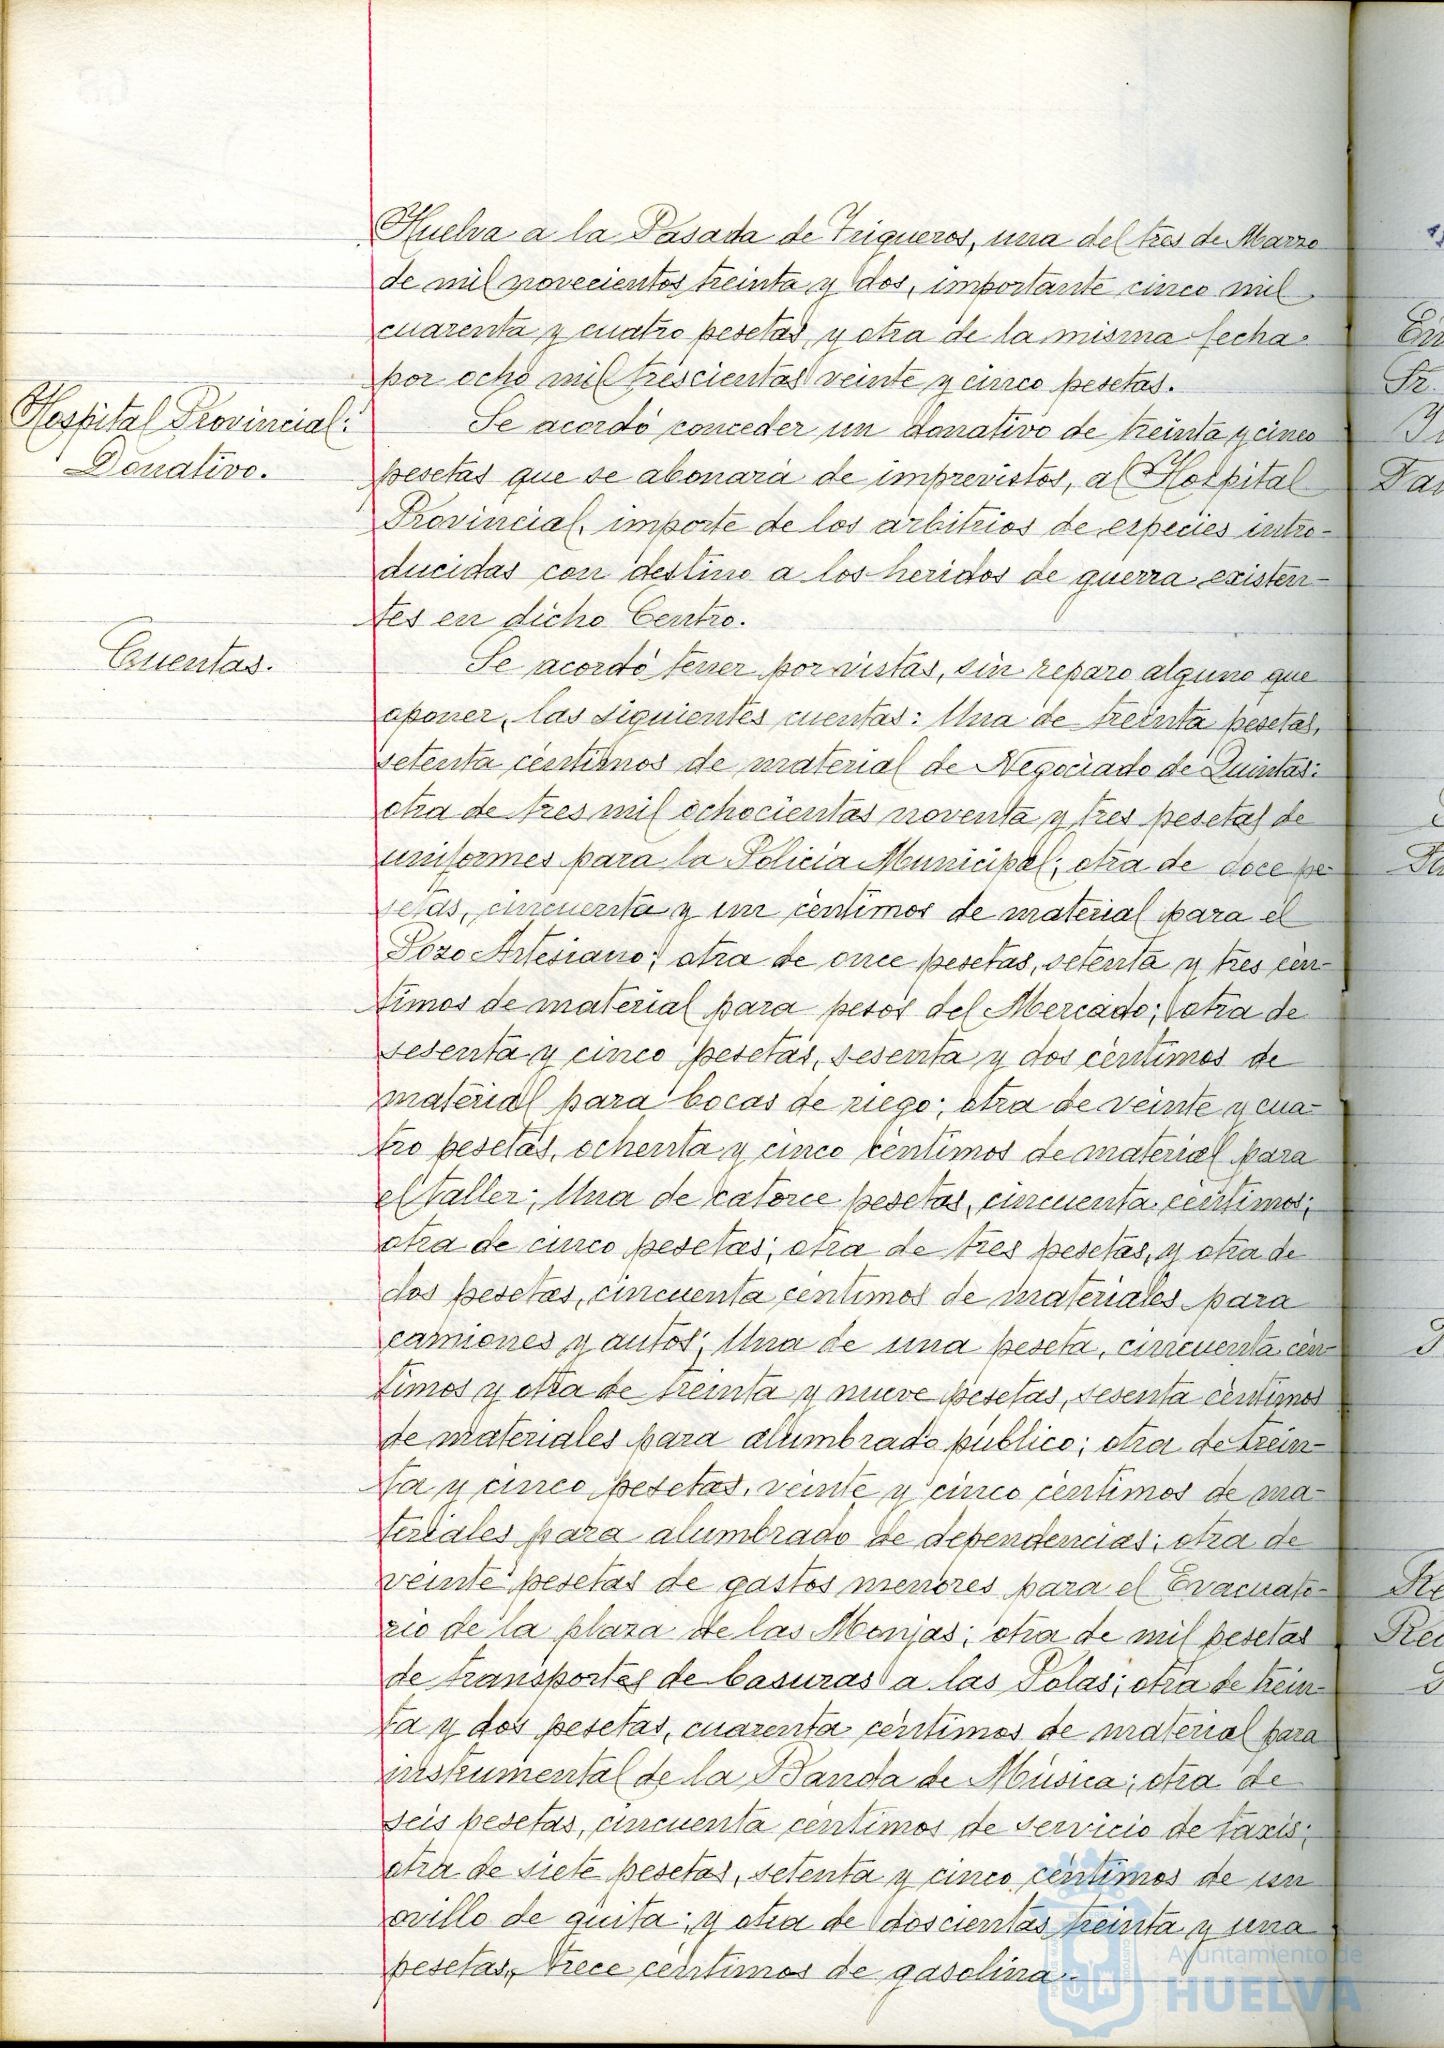 Huelva a la Pasada de Trigueros, una del tres de Marzo
de mil novecientos treinta y dos, importante cinco mil
cuarenta y cuatro pesetas, y otra de la misma fecha
por ocho mil trescientas veinte y cinco pesetas.
Hospital Provincial:
Donativo.
Se acordó conceder un donativo de treinta y cinco
pesetas que se abonará de imprevistos, al Hospital
Provincial, importe de los arbitrios de especies intro-
ducidas con destino a los heridos de guerra existen-
tes en dicho Centro.
Cuentas.
Se acordó tener por vistas, sin reparo alguno que
oponer, las siguientes cuentas: Una de treinta pesetas,
setenta céntimos de material de Negociado de Quintas:
otra de tres mil ochocientas noventa y tres pesetas de
uniformes para la Policía Municipal; otra de doce pe-
setas, cincuenta y un céntimos de material para el
Pozo Artesiano; otra de once pesetas, setenta y tres cén-
timos de material para pesos del Mercado; otra de
sesenta y cinco pesetas, sesenta y dos céntimos de
material para bocas de riego; otra de veinte y cua-
tro pesetas, ochenta y cinco céntimos de material para
el taller; Una de catorce pesetas, cincuenta céntimos;
otra de cinco pesetas; otra de tres pesetas, y otra de
dos pesetas, cincuenta céntimos de materiales para
camiones y autos; Una de una peseta, cincuenta cén-
timos y otra de treinta y nueve pesetas, sesenta céntimos
de materiales para alumbrado público; otra de trein-
ta y cinco pesetas, veinte y cinco céntimos de ma-
teriales para alumbrado de dependencias; otra de
veinte pesetas de gastos menores para el Evacuato-
rio de la plaza de las Monjas; otra de mil pesetas
de transportes de basuras a las Polas; otra de trein-
ta y dos pesetas, cuarenta céntimos de material para
instrumental de la Banda de Música; otra de
seis pesetas, cincuenta céntimos de servicio de taxis;
otra de siete pesetas, setenta y cinco céntimos de un
ovillo de guita; y otra de doscientas treinta y una
pesetas, trece céntimos de gasolina.
Ayuntamiento de
HUELVA